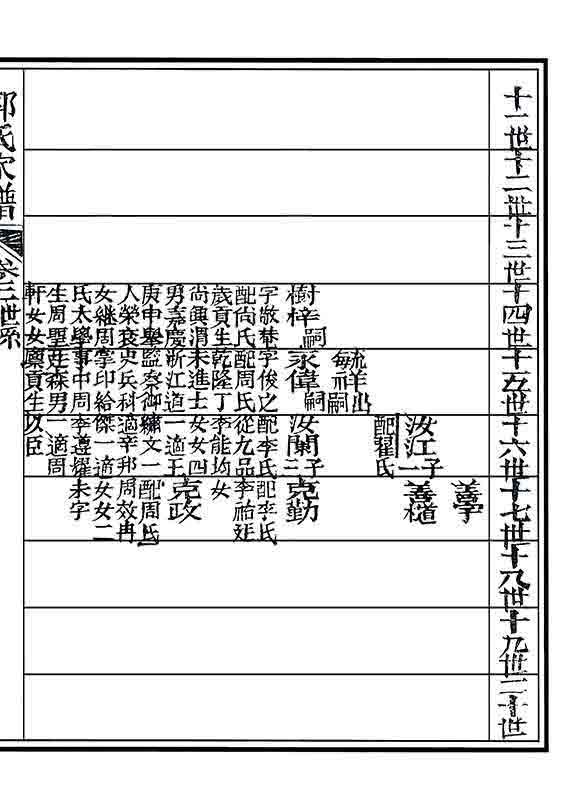 十一世十二世十三世十四世十五世十六世十七世十八世十九世二十世
善學
汝江子一
善
配翟氏
毓祥出嗣
樹梓嗣
永偉嗣
汝蘭子三
克勤
字敬菴
字俊之
配李氏
配李氏
配尚氏
配周氏
從九品
李祐延
歲貢生
乾隆丁
李能均
女
尚興渭
未進士
女女四
男嘉慶
浙江道
一適王
克政
庚申舉
監察御
繡文一
配周氏
人榮褒
史兵科
適辛邦
周效冉
女繼周
掌印給
傑一適
女女二
氏太學
事中周
李遵燿
未字
生周聖
廷森男
一適周
軒女
廩貢生
以臣
郭氏家譜
卷三世系